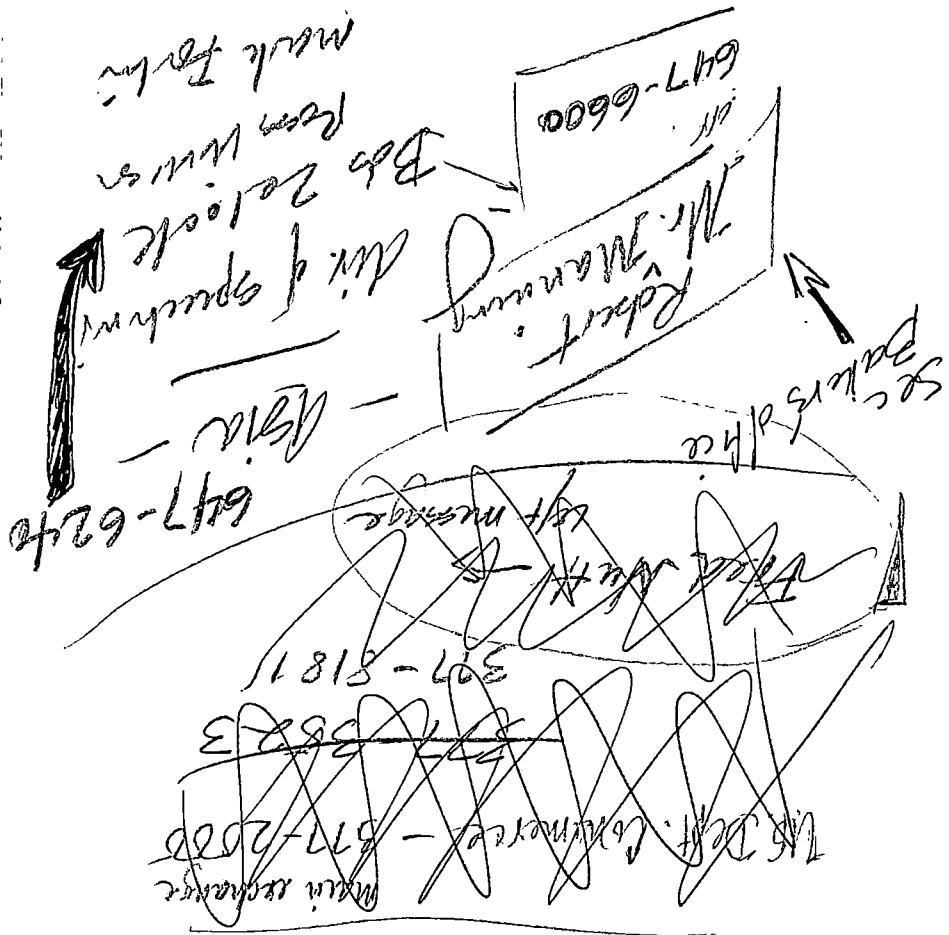 main exchange
U.S Dept. Commerce - 377-2000
377-3823
377-8181
Fred
left message
Sec Bakers office
647-6240
- Asia -
Robert
Mr. Manning
off.
647-6600
div. of Speechwri
Bob Zelock
Rom
Mark